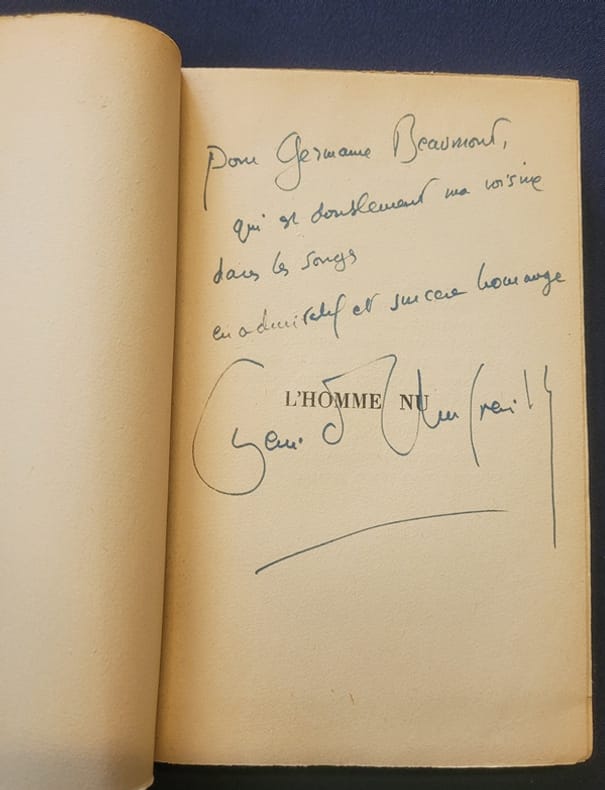 Pour Germaine Beaumont,
qui est doublement ma voisine
dans les songes
en admiratif et sincère hommage
L'HOMME NU